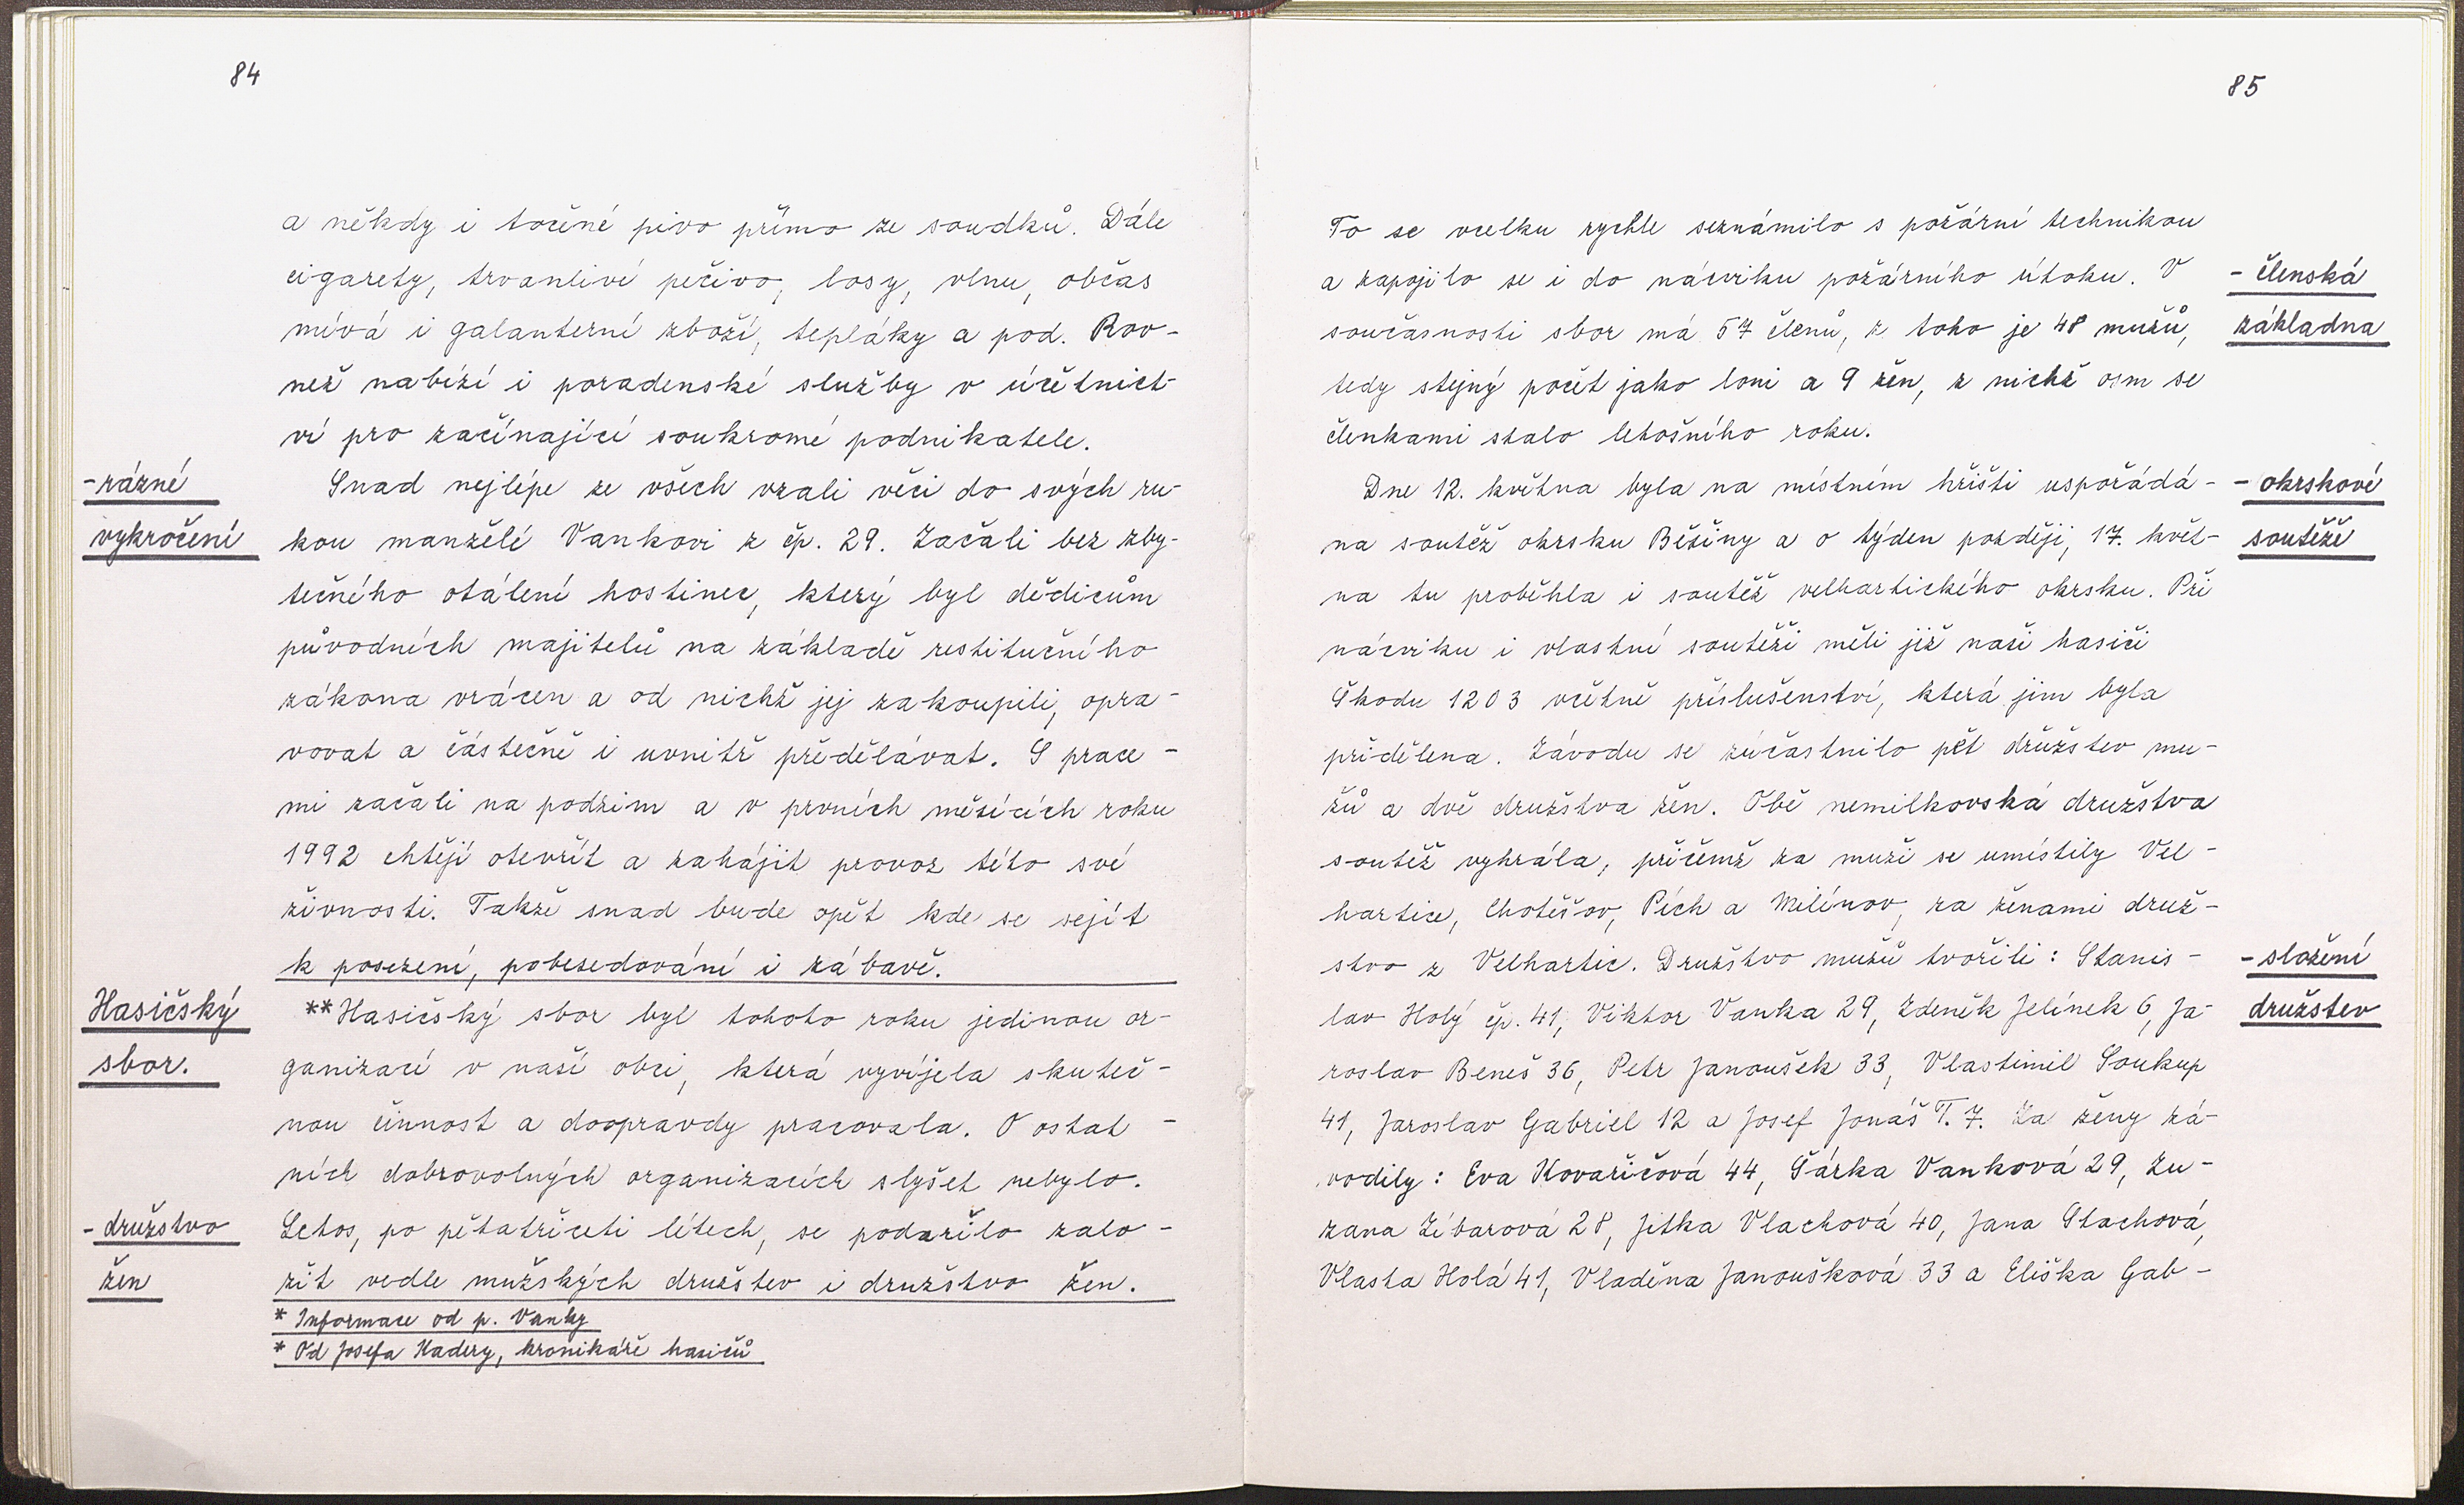 84
a někdy i točené pivo přímo ze soudků. Dále
cigarety, trvanlivé pečivo, losy, vlnu, občas
mívá i galanterní zboží, tepláky a pod. Rov-
než nabízí i poradenské služby v účetnict-
ví pro začínající soukromé podnikatele.
-rázné
vykročení
Snad nejlépe ze všech vzali věci do svých ru-
kou manželé Vankovi z čp. 29. Začali bez zby-
tečného otálení hostinec, který byl dědicům
původních majitelů na základě restitučního
zákona vrácen a od nichž jej zakoupili, opra-
vovat a částečně i uvnitř předělávat. S prace-
mi začali na podzim a v prvních měsících roku
1992 chtějí otevřít a zahájit provoz této své
živnosti. Takže snad bude opět kde se sejít
k posezení, pobesedování i zábavě.
Hasičský
sbor.
**Hasičský sbor byl tohoto roku jedinou or-
ganizací v naší obci, která vyvíjela skuteč-
nou činnost a doopravdy pracovala. O ostat-
ních dobrovolných organizacích slyšet nebylo.
-družstvo
žen
Letos, po pětatřiceti létech, se podařilo zalo-
žit vedle mužských družstev i družstvo žen.
* Informace od p. Vanky
* Od Josefa Kadery, kronikáře hasičů
85
To se vcelku rychle seznámilo s požární technikou
a zapojilo se i do nácviku požárního útoku. V
současnosti sbor má 57 členů, z toho je 48 mužů,
tedy stejný počet jako loni a 9 žen, z nichž osm se
členkami stalo letošního roku.
- členská
základna
Dne 12. května byla na místním hřišti uspořádá-
na soutěž okrsku Běšiny a o týden později, 17. květ-
na tu proběhla i soutěž velhartického okrsku. Při
nácviku i vlastní soutěži měli již naši hasiči
Škodu 1203 včetně příslušenství, která jim byla
přidělena. Závodu se zúčastnilo pět družstev mu-
žů a dvě družstva žen. Obě nemilkovská družstva
soutěž vyhrála, přičemž za muži se umístily Vel-
hartice, Chotěšov, Pích a Milínov, za ženami druž-
stvo z Velhartic. Družstvo mužů tvořili: Stanis-
lav Holý čp. 41, Viktor Vanka 29, Zdeněk Jelínek 6, Ja-
roslav Beneš 36, Petr Janoušek 33, Vlastimil Soukup
41, Jaroslav Gabriel 12 a Josef Jonáš T. 7. Za ženy zá-
vodily: Eva Kovaříčová 44, Šárka Vanková 29, Zu-
zana Zíbarová 28, Jitka Vlachová 40, Jana Stachová,
Vlasta Holá 41, Vladěna Janoušková 33 a Eliška Gab-
- okrskové
soutěže
- složení
družstev